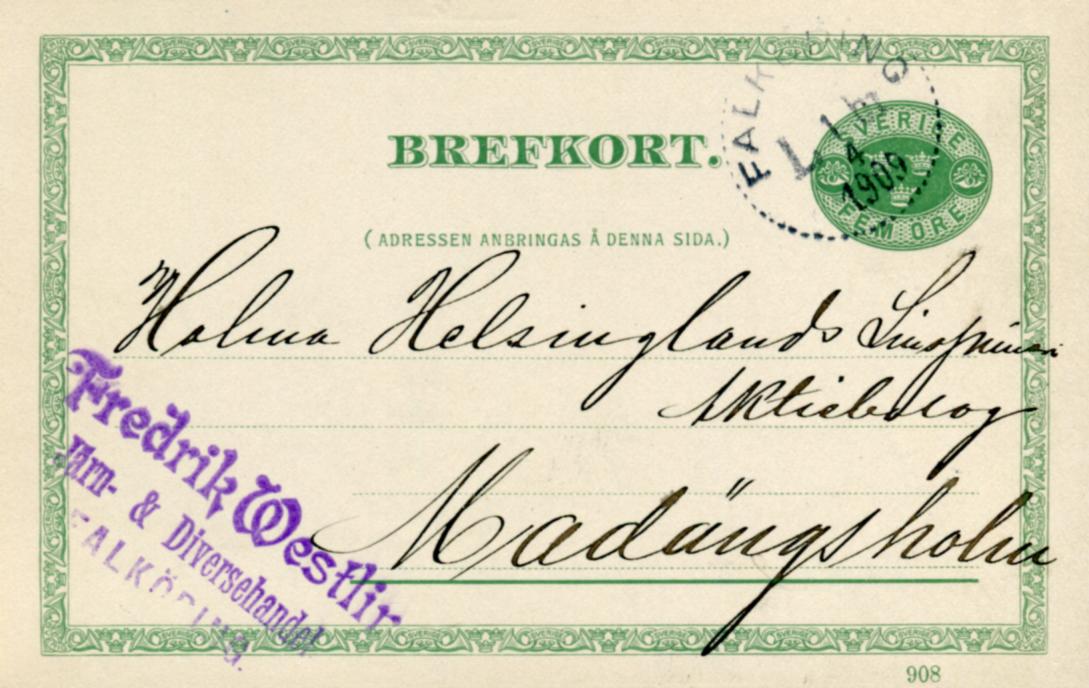 BREFKORT.
FALKÖPING
4
1909
SVERIGE
FEM ÖRE
(ADRESSEN ANBRINGAS Å DENNA SIDA.)
Holma Helsinglands
Aktiebolag
Madängsholm
Fredrik Westlin
Järn- & Diversehandel
FALKÖPING.
908